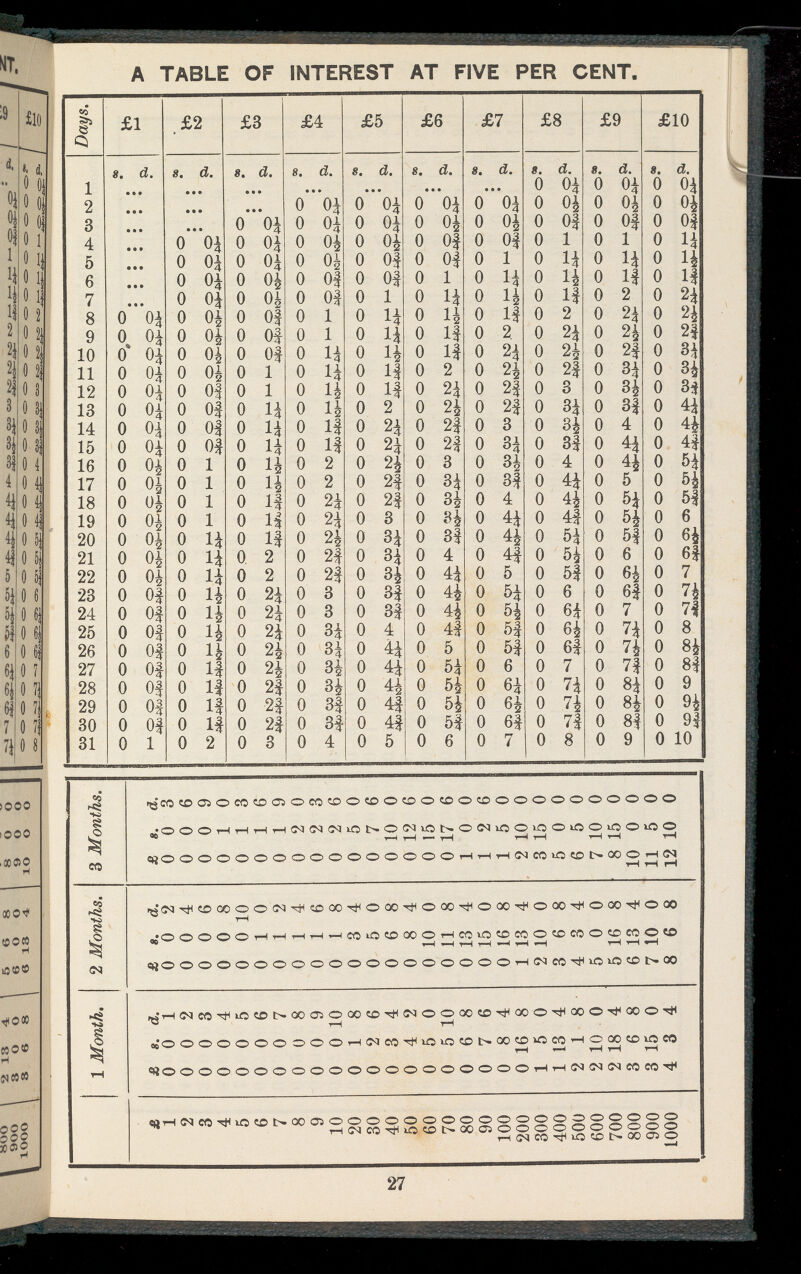 A TABLE OF INTEREST AT FIVE PER CENT.
Days. £1 £2 £3 £4 £5 £6 £7 £8 £9 £10
s. d. s. d. s. d. s. d. s. d. s. d. s. d. s. d. s. d. s. d.
1 ... ... ... ... ... ... ... 0 0¼ 0 0¼ 0 0¼
2 ... ... ... 0 0¼ 0 0¼ 0 0¼ 0 0¼ 0 0½ 0 0½ 0 0½
3 ... ... 0 0¼ 0 0¼ 0 0¼ 0 0½ 0 0½ 0 0¾ 0 0¾ 0 0¾
4 ... 0 0¼ 0 0¼ 0 0½ 0 0½ 0 0¾ 0 0¾ 0 1 0 1 0 1¼
5 ... 0 0¼ 0 0¼ 0 0½ 0 0¾ 0 0¾ 0 1 0 1¼ 0 1¼ 0 1½
6 ... 0 0¼ 0 0½ 0 0¾ 0 0¾ 0 1 0 1¼ 0 1½ 0 1¾ 0 1¾
7 ... 0 0¼ 0 0½ 0 0¾ 0 1 0 1¼ 0 1½ 0 1¾ 0 2 0 2¼
8 0 0¼ 0 0½ 0 0¾ 0 1 0 1¼ 0 1½ 0 1¾ 0 2 0 2¼ 0 2½
9 0 0¼ 0 0½ 0 0¾ 0 1 0 1¼ 0 1¾ 0 2 0 2¼ 0 2½ 0 2¾
10 0 0¼ 0 0½ 0 0¾ 0 1¼ 0 1½ 0 1¾ 0 2¼ 0 2½ 0 2¾ 0 3¼
11 0 0¼ 0 0½ 0 1 0 1¼ 0 1¾ 0 2 0 2½ 0 2¾ 0 3¼ 0 3½
12 0 0¼ 0 0¾ 0 1 0 1½ 0 1¾ 0 2¼ 0 2¾ 0 3 0 3½ 0 3¾
13 0 0¼ 0 0¾ 0 1¼ 0 1½ 0 2 0 2½ 0 2¾ 0 3¼ 0 3¾ 0 4¼
14 0 0¼ 0 0¾ 0 1¼ 0 1¾ 0 2¼ 0 2¾ 0 3 0 3½ 0 4 0 4½
15 0 0¼ 0 0¾ 0 1¼ 0 1¾ 0 2¼ 0 2¾ 0 3¼ 0 3¾ 0 4¼ 0 4¾
16 0 0½ 0 1 0 1½ 0 2 0 2½ 0 3 0 3½ 0 4 0 4½ 0 5¼
17 0 0½ 0 1 0 1½ 0 2 0 2¾ 0 3¼ 0 3¾ 0 4¼ 0 5 0 5½
18 0 0½ 0 1 0 1¾ 0 2¼ 0 2¾ 0 3½ 0 4 0 4½ 0 5¼ 0 5¾
19 0 0½ 0 1 0 1¾ 0 2¼ 0 3 0 3½ 0 4¼ 0 4¾ 0 5½ 0 6
20 0 0½ 0 1¼ 0 1¾ 0 2½ 0 3¼ 0 3¾ 0 4½ 0 5¼ 0 5¾ 0 6½
21 0 0½ 0 1¼ 0 2 0 2¾ 0 3¼ 0 4 0 4¾ 0 5½ 0 6 0 6¾
22 0 0½ 0 1¼ 0 2 0 2¾ 0 3½ 0 4¼ 0 5 0 5¾ 0 6½ 0 7
23 0 0¾ 0 1½ 0 2¼ 0 3 0 3¾ 0 4½ 0 5¼ 0 6 0 6¾ 0 7½
24 0 0¾ 0 1½ 0 2¼ 0 3 0 3¾ 0 4½ 0 5½ 0 6¼ 0 7 0 7¾
25 0 0¾ 0 1½ 0 2¼ 0 3¼ 0 4 0 4¾ 0 5¾ 0 6½ 0 7¼ 0 8
26 0 0¾ 0 1½ 0 2½ 0 3¼ 0 4¼ 0 5 0 5¾ 0 6¾ 0 7½ 0 8½
27 0 0¾ 0 1¾ 0 2½ 0 3½ 0 4¼ 0 5¼ 0 6 0 7 0 7¾ 0 8¾
28 0 0¾ 0 1¾ 0 2¾ 0 3½ 0 4½ 0 5½ 0 6¼ 0 7¼ 0 8¼ 0 9
29 0 0¾ 0 1¾ 0 2¾ 0 3¾ 0 4¾ 0 5½ 0 6½ 0 7½ 0 8½ 0 9½
30 0 0¾ 0 1¾ 0 2¾ 0 3¾ 0 4¾ 0 5¾ 0 6¾ 0 7¾ 0 8¾ 0 9¾
31 0 1 0 2 0 3 0 4 0 5 0 6 0 7 0 8 0 9 0 10
1 Month. 2 Months. 3 Months.
£ £ s. d. £ s. d. £ s. d.
1 0 0 1 0 0 2 0 0 3
2 0 0 2 0 0 4 0 0 6
3 0 0 3 0 0 6 0 0 9
4 0 0 4 0 0 8 0 1 0
5 0 0 5 0 0 10 0 1 3
6 0 0 6 0 1 0 0 1 6
7 0 0 7 0 1 2 0 1 9
8 0 0 8 0 1 4 0 2 0
9 0 0 9 0 1 6 0 2 3
10 0 0 10 0 1 8 0 2 6
20 0 1 8 0 3 4 0 5 0
30 0 2 6 0 5 0 0 7 6
40 0 3 4 0 6 8 0 10 0
50 0 4 2 0 8 4 0 12 6
60 0 5 0 0 10 0 0 15 0
70 0 5 10 0 11 8 0 17 6
80 0 6 8 0 13 4 1 0 0
90 0 7 6 0 15 0 1 2 6
100 0 8 4 0 16 8 1 5 0
200 0 16 8 1 13 4 2 10 0
300 1 5 0 2 10 0 3 15 0
400 1 13 4 3 6 8 5 0 0
500 2 1 8 4 3 4 6 5 0
600 2 10 0 5 0 0 7 10 0
700 2 18 4 5 16 8 8 15 0
800 3 6 8 6 13 4 10 0 0
900 3 15 0 7 10 0 11 5 0
1000 4 3 4 8 6 8 12 10 0
27